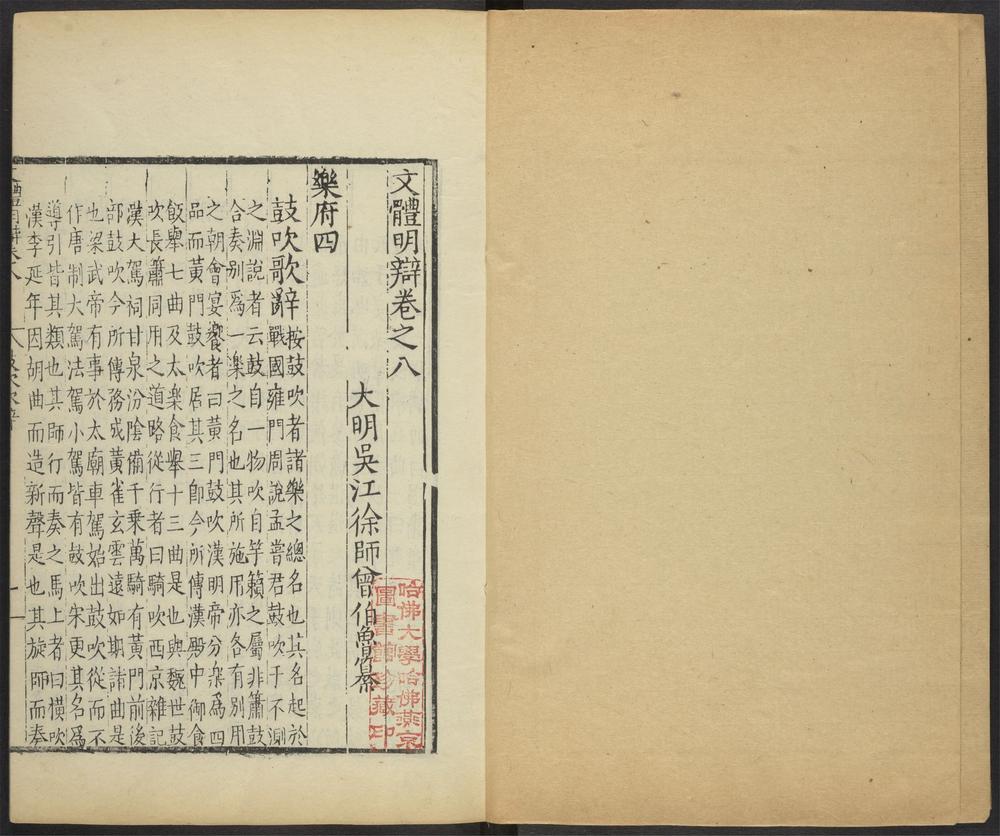 文體明辯卷之八
大明吳江徐師曾伯魯纂
樂府四
鼓吹歌辭按鼓吹者諸樂之總名也其名起於
戰國雍門周說孟嘗君鼓吹于不測
之淵說者云鼓自一物吹自竽籟之屬非簫鼓
合奏別爲一樂之名也其所施用亦各有別用
之朝會宴饗者曰黃門鼓吹漢明帝分樂爲四
品而黃門鼓吹居其三卽今所傳漢殿中御食
飯舉七曲及太樂食舉十三曲是也與魏世鼓
吹長簫同用之道路從行者曰騎吹西京雜記
漢大駕祠甘泉汾陰備千乘萬騎有黃門前後
部鼓吹今所傳務成黃雀玄雲遠如期諸曲是
也梁武帝有事於太廟車駕始出鼓吹從而不
作唐制大駕法駕小駕皆有鼓吹宋更其名爲
導引皆其類也其師行而奏之馬上者曰橫吹
漢李延年因胡曲而造新聲是也其旋師而奏
哈佛大學哈佛燕京
圖書館珍藏印